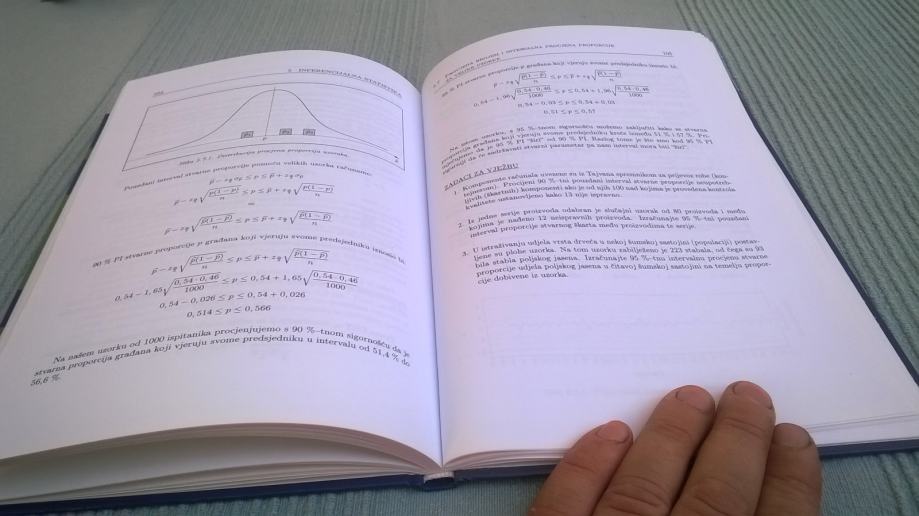 5 INFERENCIJALNA STATISTIKA
Slika 5.7.1. Distribucija procjena proporcija uzoraka.
Pouzdani interval stvarne proporcije pomoću velikih uzoraka računamo:
p̄ − z_q σ_p ≤ p ≤ p̄ + z_q σ_p
p̄ − z_q √(p(1−p)/n) ≤ p ≤ p̄ + z_q √(p(1−p)/n)
≈
p̄ − z_q √(p̄(1−p̄)/n) ≤ p ≤ p̄ + z_q √(p̄(1−p̄)/n)
90 % PI stvarne proporcije p građana koji vjeruju svome predsjedniku iznosio bi.
p̄ − z_q √(p̄(1−p̄)/n) ≤ p ≤ p̄ + z_q √(p̄(1−p̄)/n)
0,54 − 1,65 √(0,54·0,46/1000) ≤ p ≤ 0,54 + 1,65 √(0,54·0,46/1000)
0,54 − 0,026 ≤ p ≤ 0,54 + 0,026
0,514 ≤ p ≤ 0,566
Na našem uzorku od 1000 ispitanika procjenjujemo s 90 %–tnom sigornošću da je
stvarna proporcija građana koji vjeruju svome predsjedniku u intervalu od 51,4 % do
56,6 %.
PROCJENA BROJEM I INTERVALNA PROCJENA PROPORCIJE
ZA VELIKE UZORKE
95 % PI stvarne proporcije p građana koji vjeruju svome predsjedniku iznosio bi.
p̄ − z_q √(p̄(1−p̄)/n) ≤ p ≤ p̄ + z_q √(p̄(1−p̄)/n)
0,54 − 1,96 √(0,54·0,46/1000) ≤ p ≤ 0,54 + 1,96 √(0,54·0,46/1000)
0,54 − 0,03 ≤ p ≤ 0,54 + 0,03
0,51 ≤ p ≤ 0,57
Na istom uzorku, s 95 %–tnom sigornošću možemo zaključiti kako se stvarna
proporcija građana koji vjeruju svome predsjedniku kreće između 51 % i 57 %.
da je 95 % PI "širi" od 90 % PI. Razlog tome je što smo kod 95 % PI
sigurniji da će sadržavati stvarni parametar pa nam interval mora biti "širi".
ZADACI ZA VJEŽBU
1. Komponente računala uvezene su iz Tajvana spremnikom za prijevoz robe (kon-
tejnerom). Procijeni 90 %–tni pouzdani interval stvarne proporcije neupotreb-
ljivih (škartnih) komponenti ako je od njih 100 nad kojima je provedena kontrola
kvalitete ustanovljeno kako 13 nije ispravno.
2. Iz jedne serije proizvoda odabran je slučajni uzorak od 80 proizvoda i među
kojima je nađeno 12 neispravnih proizvoda. Izračunajte 95 %–tni pouzdani
interval proporcije stvarnog škarta među proizvodima te serije.
3. U istraživanju udjela vrsta drveća u nekoj šumskoj sastojini (populaciji) postav-
ljene su plohe uzorka. Na tom uzorku zabilježeno je 223 stabala, od čega su 93
bila stabla poljskog jasena. Izračunajte 95 %–tnu intervalnu procjenu stvarne
proporcije udjela poljskog jasena u čitavoj šumskoj sastojini na temelju propor-
cije dobivene iz uzorka.